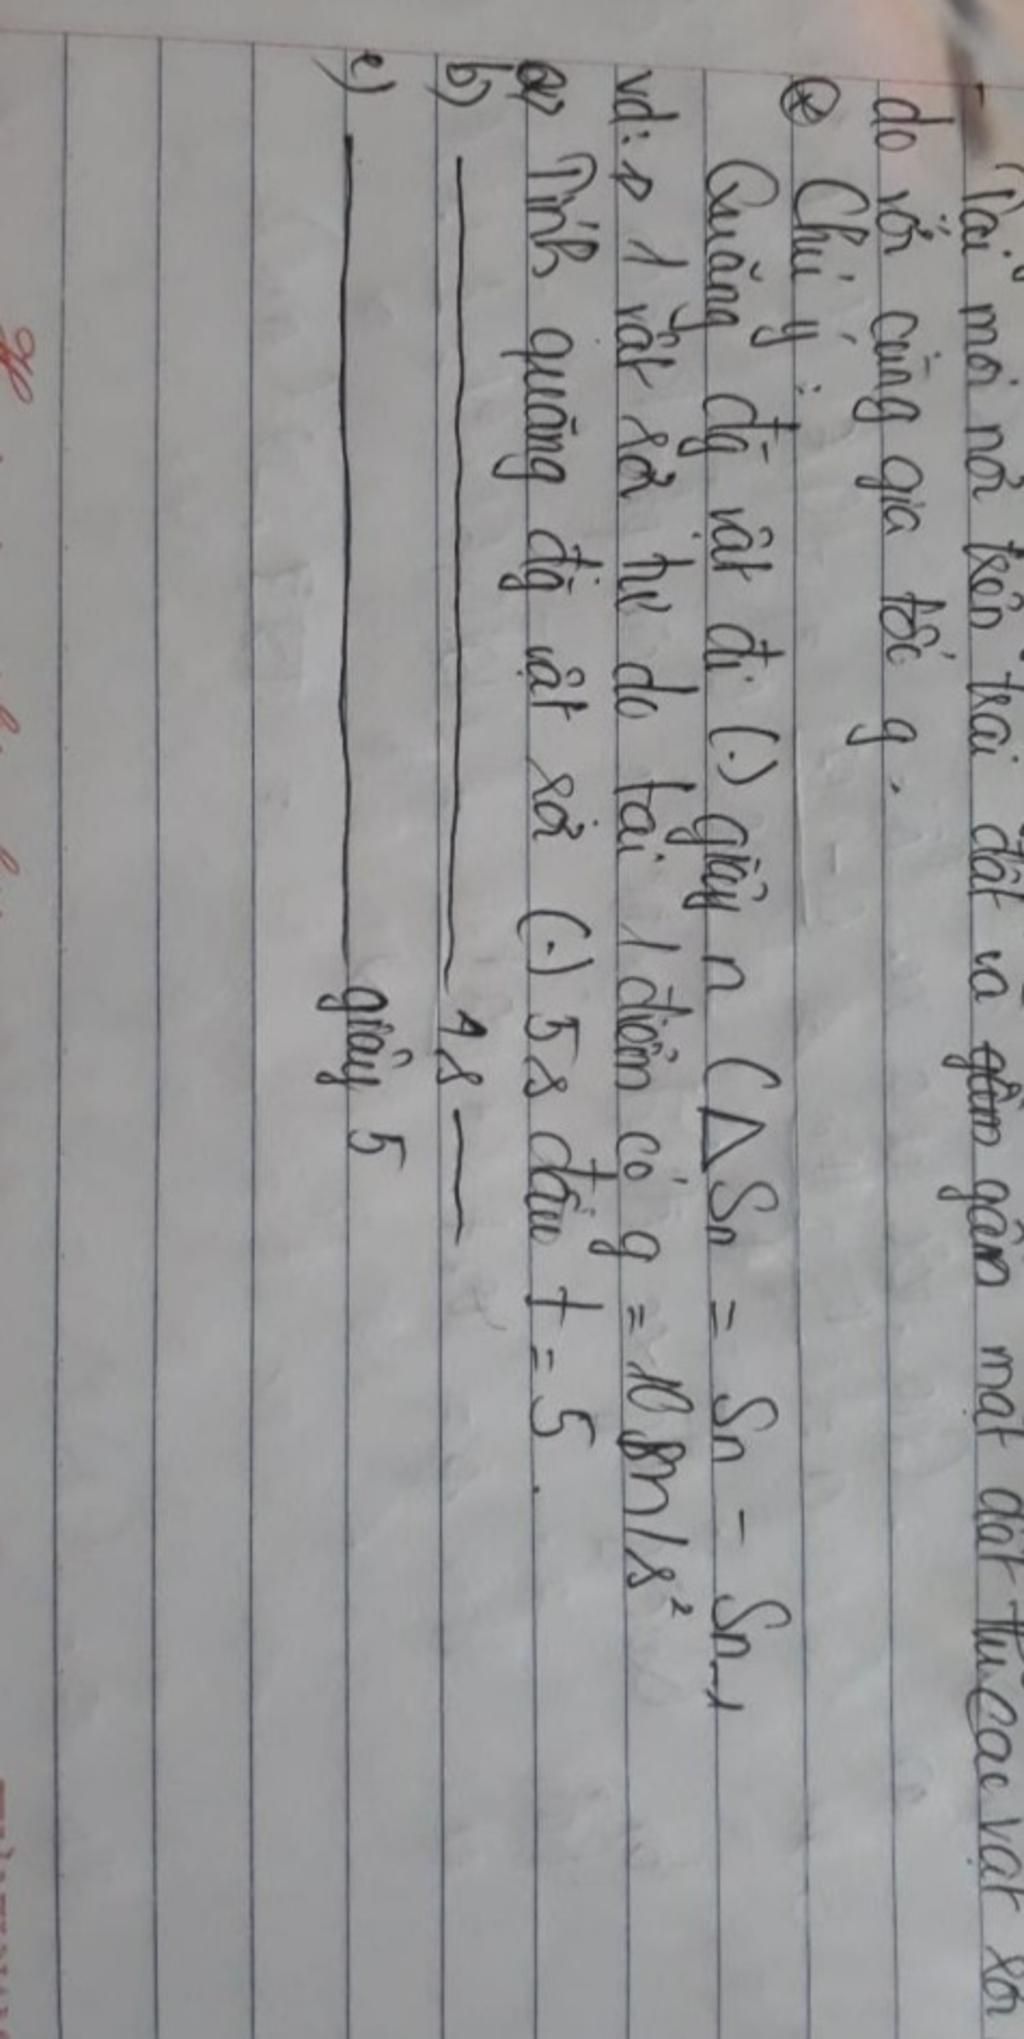 Tại mọi nơi trên trái đất và gần mặt đất thì các vật rơi
do với cùng gia tốc g.
* Chú ý:
Quãng đg vật đi (.) giây n (ΔSn = Sn - Sn-1
vd: 1 vật rơi tự do tại 1 điểm có g = 10 m/s²
a) Tính quãng đg vật rơi (.) 5s đầu t = 5.
b) ——— 4s —
c) ——— giây 5